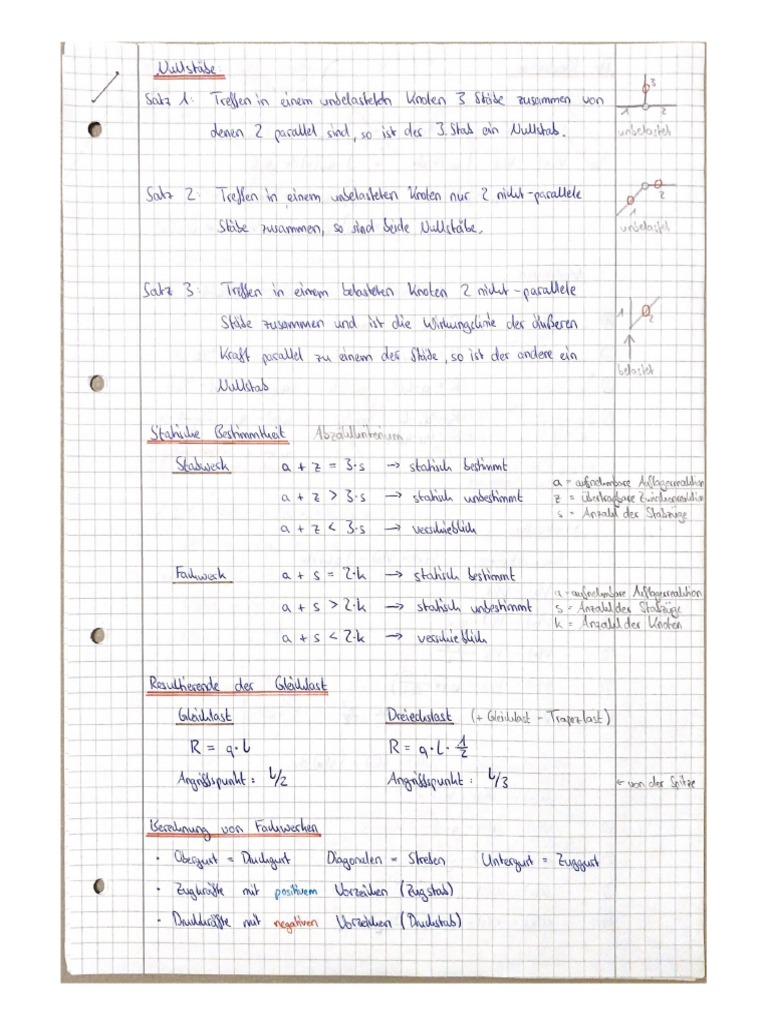 Nullstäbe
Satz 1: Treffen in einem unbelasteten Knoten 3 Stäbe zusammen von
denen 2 parallel sind, so ist der 3. Stab ein Nullstab.
3
1 2
unbelastet
Satz 2: Treffen in einem unbelasteten Knoten nur 2 nicht-parallele
Stäbe zusammen, so sind beide Nullstäbe.
2
1
unbelastet
Satz 3: Treffen in einem belasteten Knoten 2 nicht-parallele
Stäbe zusammen und ist die Wirkungslinie der äußeren
Kraft parallel zu einem der Stäbe, so ist der andere ein
Nullstab
1 2
belastet
Statische Bestimmtheit Abzählkriterium
Stabwerk a + z = 3·s → statisch bestimmt
a + z > 3·s → statisch unbestimmt
a + z < 3·s → verschieblich
a = aufnehmbare Auflagerreaktion
z = übertragbare Zwischenreaktion
s = Anzahl der Stabzüge
Fachwerk a + s = 2·k → statisch bestimmt
a + s > 2·k → statisch unbestimmt
a + s < 2·k → verschieblich
a = aufnehmbare Auflagerreaktion
s = Anzahl der Stabzüge
k = Anzahl der Knoten
Resultierende der Gleichlast
Gleichlast Dreieckslast (+ Gleichlast - Trapezlast)
R = q·l R = q·l·1/2
Angriffspunkt: l/2 Angriffspunkt: l/3 ← von der Spitze
Berechnung von Fachwerken
• Obergurt = Druckgurt Diagonalen = Streben Untergurt = Zuggurt
• Zugkräfte mit positivem Vorzeichen (Zugstab)
• Druckkräfte mit negativen Vorzeichen (Druckstab)